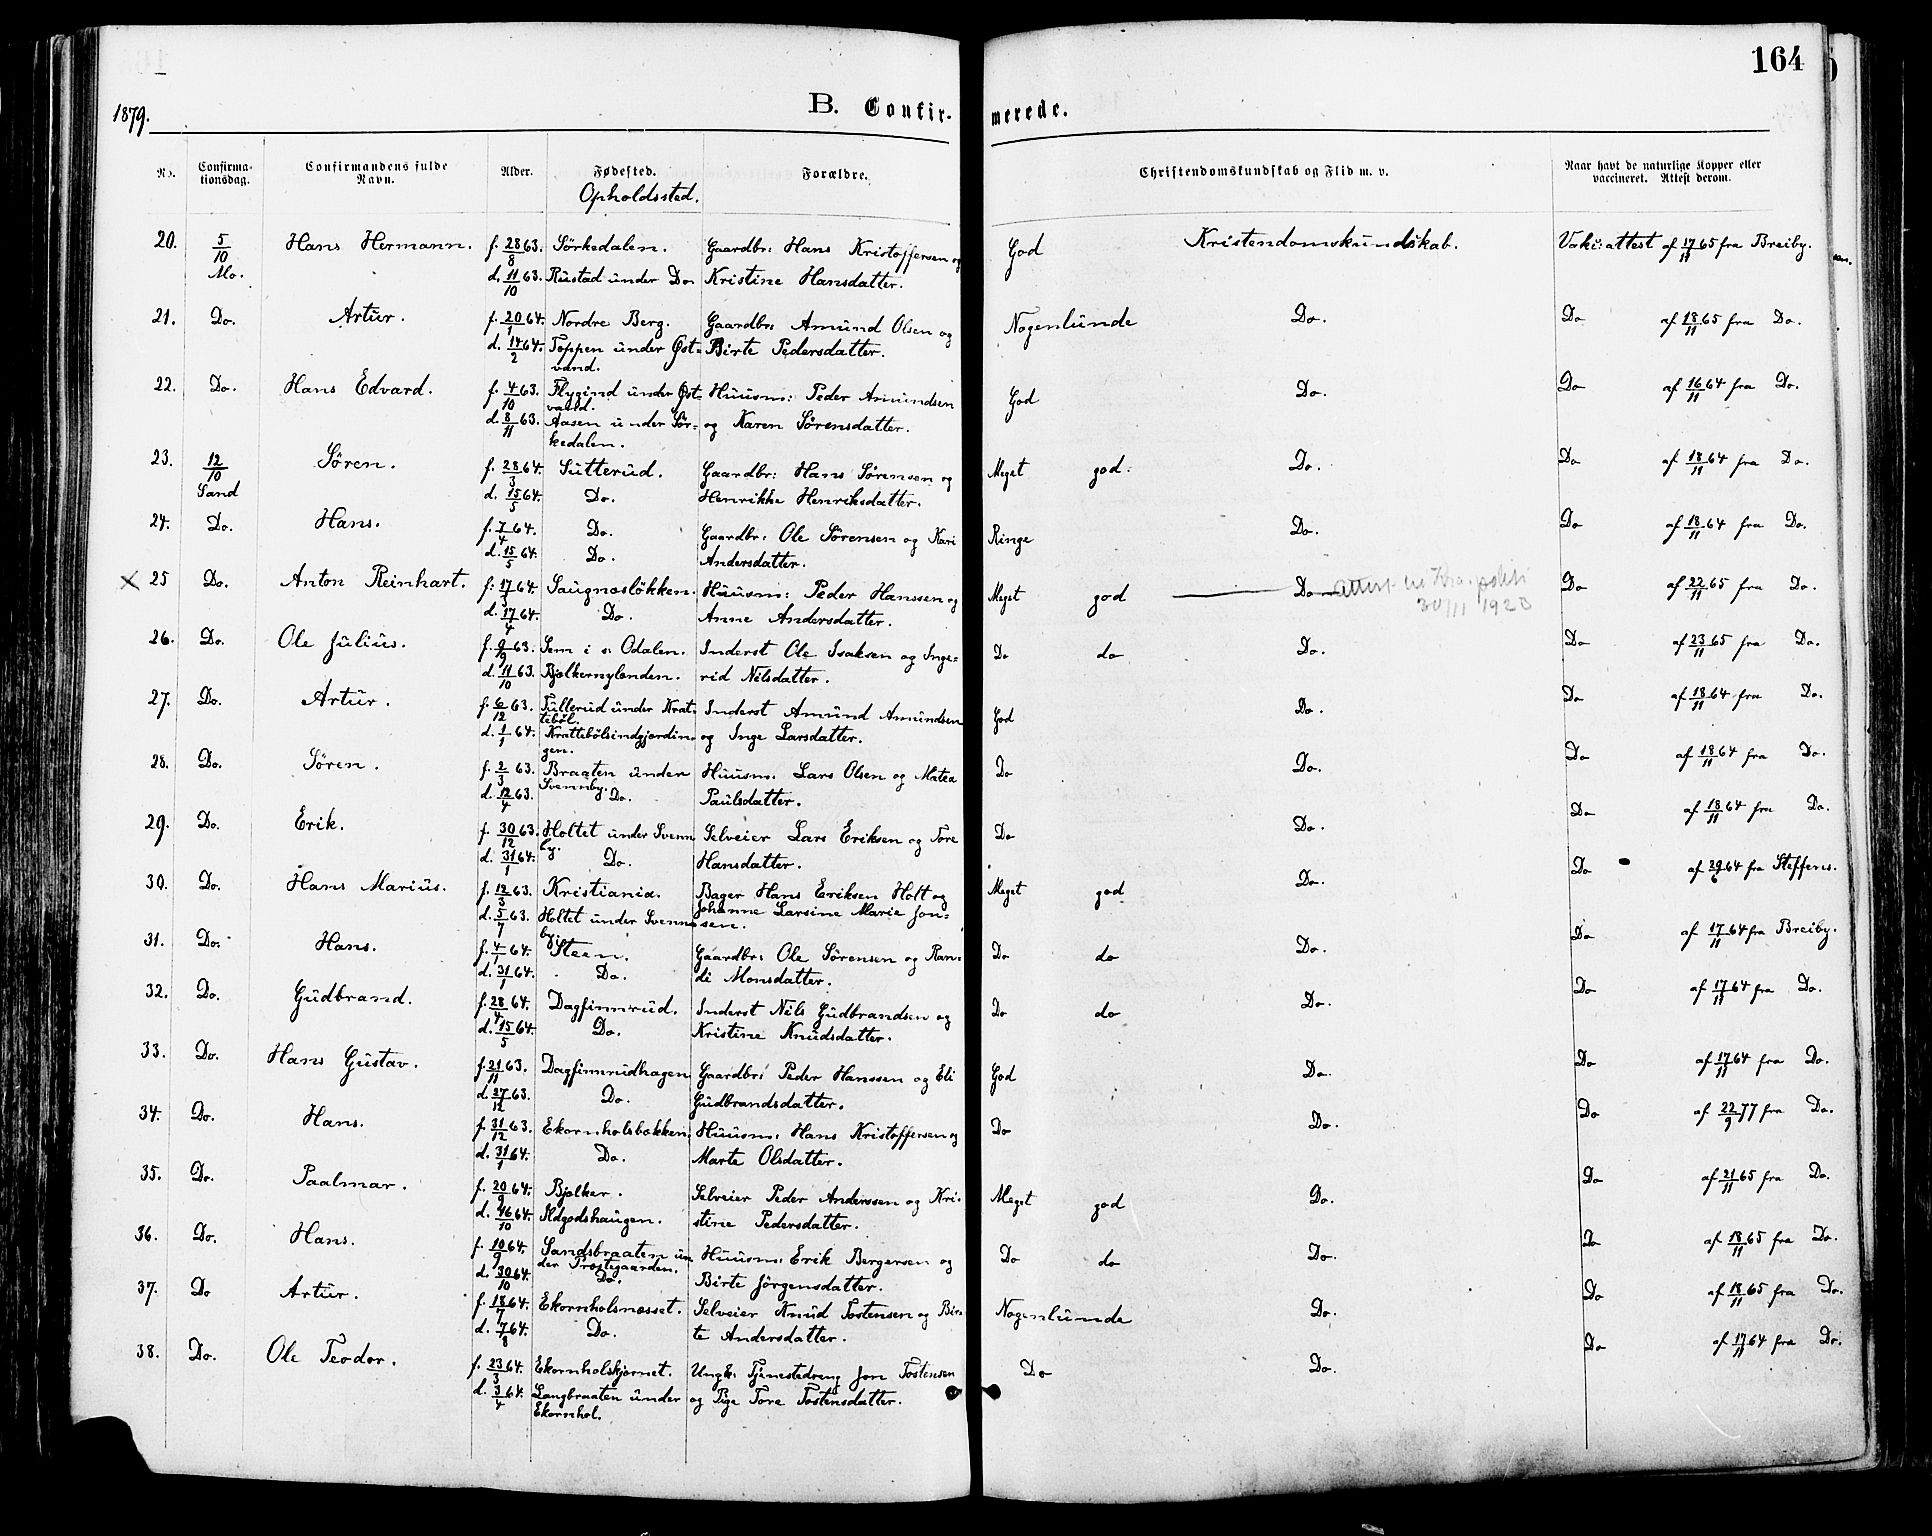 164
1879.
B. Confirmerede.
No. Confirmationsdag. Confirmandens fulde Navn. Alder. Fødested. Forældre. Christendomskundskab og Flid m. v. Naar havt de naturlige Kopper eller vaccineret. Attest derom.
Opholdssted.
20. 5/10 Hans Hermann. f. 28/8 63. Sörkedalen. Gaardbr: Hans Kristoffersen og God Kristendomskundskab. Vaks: attest af 17/11 65 fra Breiby.
Mo. d. 11/10 63. Rustad under Do Kristine Hansdatter.
21. Do. Artur. f. 20/1 64. Nordre Berg. Gaardbr: Amund Olsen og Nogenlunde Do. Do af 18/11 65 fra Do.
d. 14/2 64. Toppen under Øst- Birte Pedersdatter.
vand.
22. Do. Hans Edvard. f. 4/10 63. Flygind under Øst- Huusm: Peder Amundsen God Do. Do af 16/11 64 fra Do.
vand.
d. 8/11 63. Aasen under Sör- og Karen Sörensdatter.
kedalen.
23. 12/10 Sören. f. 28/3 64. Sutterud. Gaardbr: Hans Sörensen og Meget god. Do. Do af 18/11 64 fra Do.
Sand d. 15/5 64. Do. Henrikke Henriksdatter.
24. Do. Hans. f. 7/4 64. Do. Gaardbr: Ole Sörensen og Kari Ringe Do. Do af 18/11 64 fra Do.
d. 15/5 64. Do. Andersdatter.
× 25 Do. Anton Reinhart. f. 17/3 64. Saugnæslökken. Huusm: Peder Hanssen og Meget god Do attest til Kra. politi Do af 22/11 65 fra Do.
30/11 1923
d. 17/4 64. Do. Anne Andersdatter.
26. Do. Ole Julius. f. 9/9 63. Sem i s: Odalen. Inderst Ole Isaksen og Inge- Do do Do. Do af 23/11 65 fra Do.
d. 11/10 63. Bjølkernylenden. rid Nilsdatter.
27. Do. Artur. f. 6/12 63. Tullerud under Krat- Inderst Amund Amundsen God Do. Do af 18/11 64 fra Do.
tebøl.
d. 1/1 64. Krattebölsindgjærdin- og Inge Larsdatter.
gen.
28. Do. Sören. f. 2/3 63. Braaten under Huusm: Lars Olsen og Matea Do Do. Do af 18/11 64 fra Do.
Svennby.
d. 12/4 63. Do. Paulsdatter.
29. Do. Erik. f. 30/12 63. Holtet under Svenn- Selveier Lars Eriksen og Tore Do Do. Do af 18/11 64 fra Do.
by.
d. 31/1 64. Do. Hansdatter.
30. Do. Hans Marius. f. 12/3 63. Kristiania. Bager Hans Eriksen Holt og Meget god Do. Do af 29/6 64 fra Steffens.
Johanne Larsine Marie Jon-
d. 5/7 63. Holtet under Svenn- sen.
by.
31. Do. Hans. f. 4/1 64. Steen. Gaardbr: Ole Sörensen og Ran- Do do Do. Do af 17/11 64 fra Breiby.
d. 31/1 64. Do. di Monsdatter.
32. Do. Gudbrand. f. 28/4 64. Dagfinnrud. Inderst Nils Gudbrandsen og Do do Do. Do af 17/11 64 fra Do.
d. 15/5 64. Do. Kristine Knudsdatter.
33. Do. Hans Gustav. f. 21/11 63. Dagfinnrudhagen Gaardbr: Peder Hanssen og Eli God Do. Do af 17/11 64 fra Do.
d. 27/12 63. Do. Gudbrandsdatter.
34. Do. Hans. f. 31/12 63. Ekornholsbakken. Huusm: Hans Kristoffersen og Do Do. Do af 22/9 77 fra Do.
d. 31/1 64. Do. Marte Olsdatter.
35. Do. Paalmar. f. 20/9 64. Bjølker. Selveier Peder Anderssen og Kri- Meget god Do. Do af 21/11 65 fra Do.
d. 16/10 64. Ildgodshaugen. stine Pedersdatter.
36. Do. Hans. f. 10/9 64. Sandsbraaten un- Huusm: Erik Bergersen og Do do Do. Do af 18/11 65 fra Do.
der Præstegaarden.
d. 30/10 64. Do. Birte Jörgensdatter.
37. Do Artur. f. 18/7 64. Ekornholsnæsset. Selveier Knud Tostensen og Bir- Nogenlunde Do. Do af 18/11 65 fra Do.
d. 7/8 64. Do. te Andersdatter.
38. Do. Ole Teodor. f. 23/3 64. Ekornholskjærnet. Ungk: Tjenestedreng Jon Tostensen Do Do. Do af 17/11 64 fra Do.
d. 3/4 64. Langbraaten under og Pige Tore Tostensdatter.
Ekornhol.